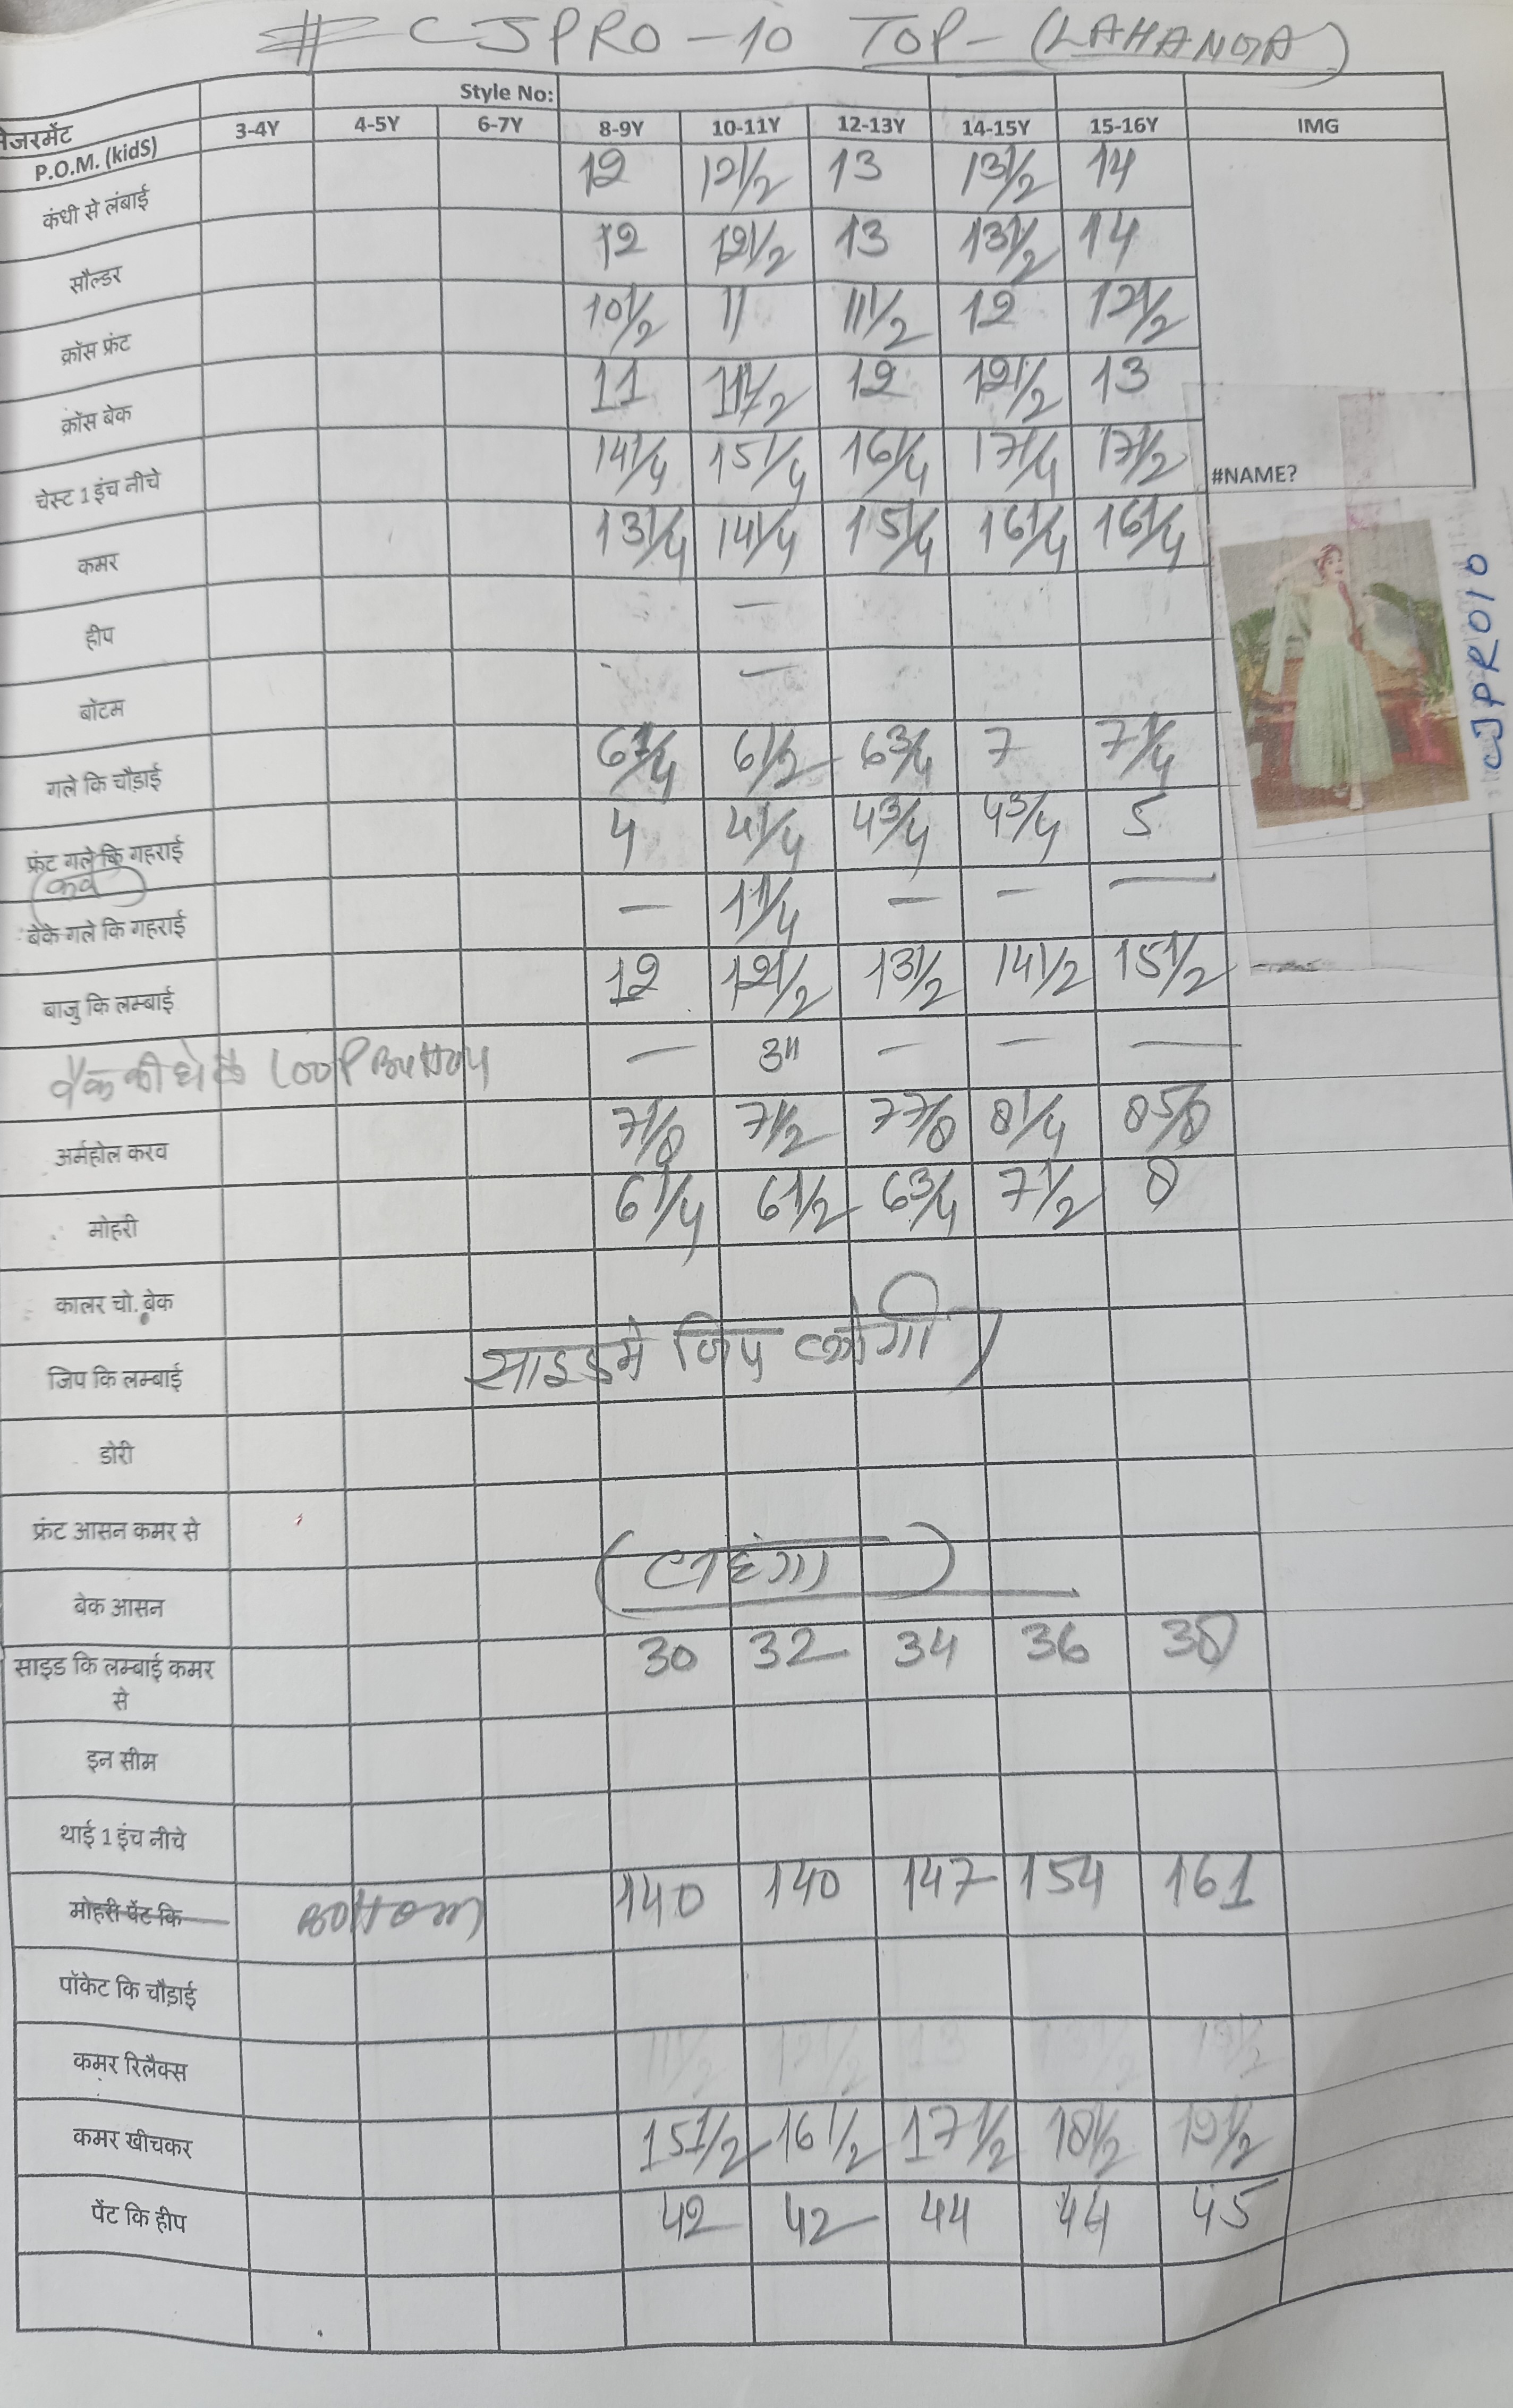 # CJPRO-10 TOP- (LAHANGA)
Style No:
मेजरमेंट P.O.M. (kidS) 3-4Y 4-5Y 6-7Y 8-9Y 10-11Y 12-13Y 14-15Y 15-16Y IMG
कंधी से लंबाई 12 12 1/2 13 13 1/2 14
सौल्डर 12 12 1/2 13 13 1/2 14
क्रॉस फ्रंट 10 1/2 11 11 1/2 12 12 1/2
क्रॉस बेक 11 11 1/2 12 12 1/2 13
चेस्ट 1 इंच नीचे 14 1/4 15 1/4 16 1/4 17 1/4 17 1/2
#NAME?
कमर 13 1/4 14 1/4 15 1/4 16 1/4 16 1/4
हीप —
बॉटम —
CJPRO10
गले कि चौड़ाई 6 1/4 6 1/2 6 3/4 7 7 1/4
फ्रंट गले कि गहराई 4 4 1/4 4 3/4 4 3/4 5
(कव)
बेके गले कि गहराई — 1 1/4 — — —
बाजु कि लम्बाई 12 12 1/2 13 1/2 14 1/2 15 1/2
बैक की LOOP Button — 3" — — —
अर्महोल करव 7 1/8 7 1/2 7 7/8 8 1/4 8 5/8
मोहरी 6 1/4 6 1/2 6 3/4 7 1/2 8
कालर चो. बेक
जिप कि लम्बाई साइड मे जिप लगेगी
डोरी
फ्रंट आसन कमर से
(लहंगा)
बेक आसन
साइड कि लम्बाई कमर से 30 32 34 36 38
इन सीम
थाई 1 इंच नीचे
मोहरी पेंट कि Bottom 140 140 147 154 161
पॉकेट कि चौड़ाई
कमर रिलैक्स
कमर खीचकर 15 1/2 16 1/2 17 1/2 18 1/2 19 1/2
पेंट कि हीप 42 42 44 44 45